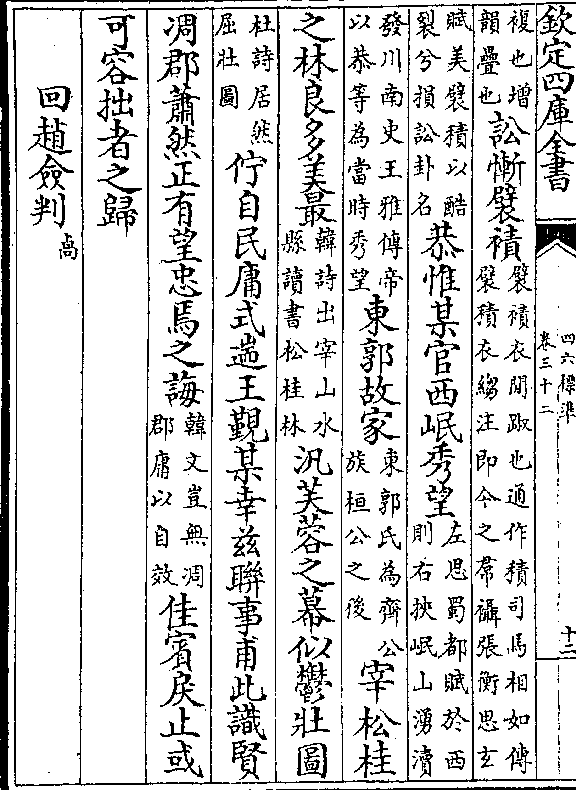 欽定四庫全書
四六標準
卷三十二
十二
複也增韻疊也訟慚襞襀襞襀衣閒蹴也通作積司馬相如傳襞積衣縐注即今之帬襵張衡思玄
賦美襞積以酷裂兮損訟卦名恭惟某官西岷秀望左思蜀都賦於西則右挾岷山湧瀆
發川南史王雅傳帝以恭等為當時秀望東郭故家東郭氏為齊公族桓公之後宰松桂
之林良多美最韓詩出宰山水縣讀書松桂林汎芙蓉之幕似鬱壯圖
杜詩居然屈壯圖佇自民庸式遄王覲某幸兹聯事甫此識賢
凋郡蕭然正有望忠焉之誨韓文豈無凋郡庸以自效佳賓戾止或
可容拙者之歸
回趙僉判卨